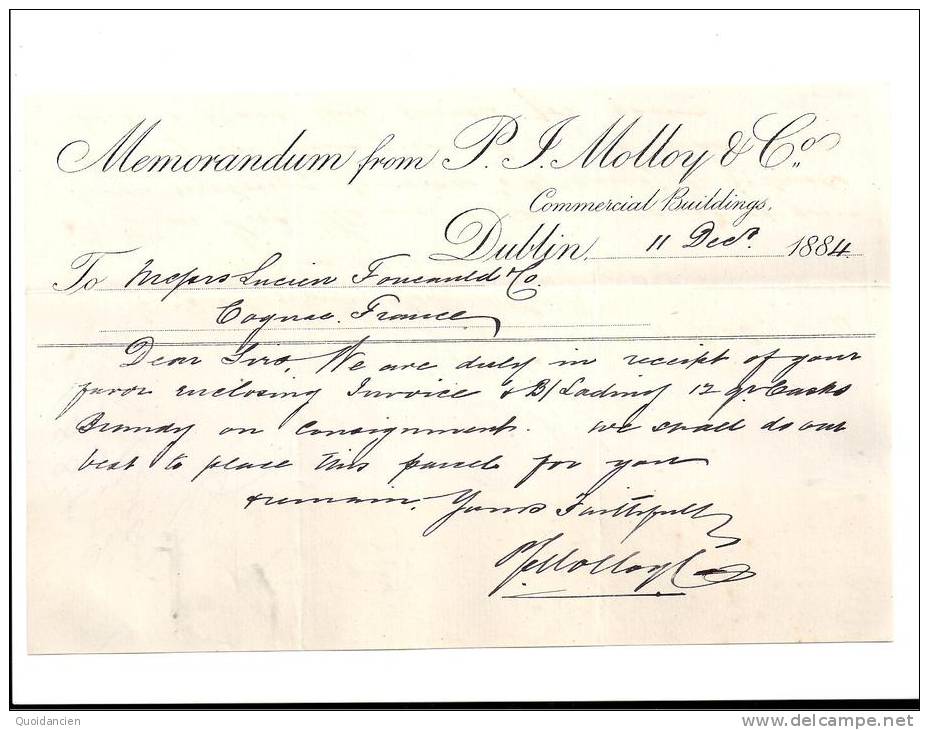 Memorandum from P. J. Molloy & Co
Commercial Buildings,
Dublin, 11 Decr. 1884
To Messrs Lucien Foucauld & Co.
Cognac. France
Dear Sirs, We are duly in receipt of your
favor enclosing Invoice & B/Lading 12 qr Casks
Brandy on Consignment. We shall do our
best to place this parcel for you
& remain, Yours Faithfully
PJ Molloy & Co
Quoidancien
www.delcampe.net